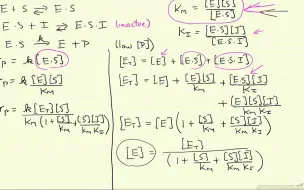 E + S ⇌ E·S
E·S + I ⇌ E·S·I (inactive)
E·S k→ E + P (low [P])
r_P = k[E·S]
r_P = k[E][S] / K_M
r_P = k[E_T][S] / K_M(1 + [S]/K_M + [S][I]/K_M K_I)
K_M = [E][S] / [E·S]
K_I = [E·S][I] / [E·S·I]
[E_T] = [E] + [E·S] + [E·S·I]
[E_T] = [E] + [E][S]/K_M + [E·S][I]/K_I
+ [E][S][I] / K_M K_I
[E_T] = [E](1 + [S]/K_M + [S][I]/K_M K_I)
[E] = [E_T] / (1 + [S]/K_M + [S][I]/K_M K_I)